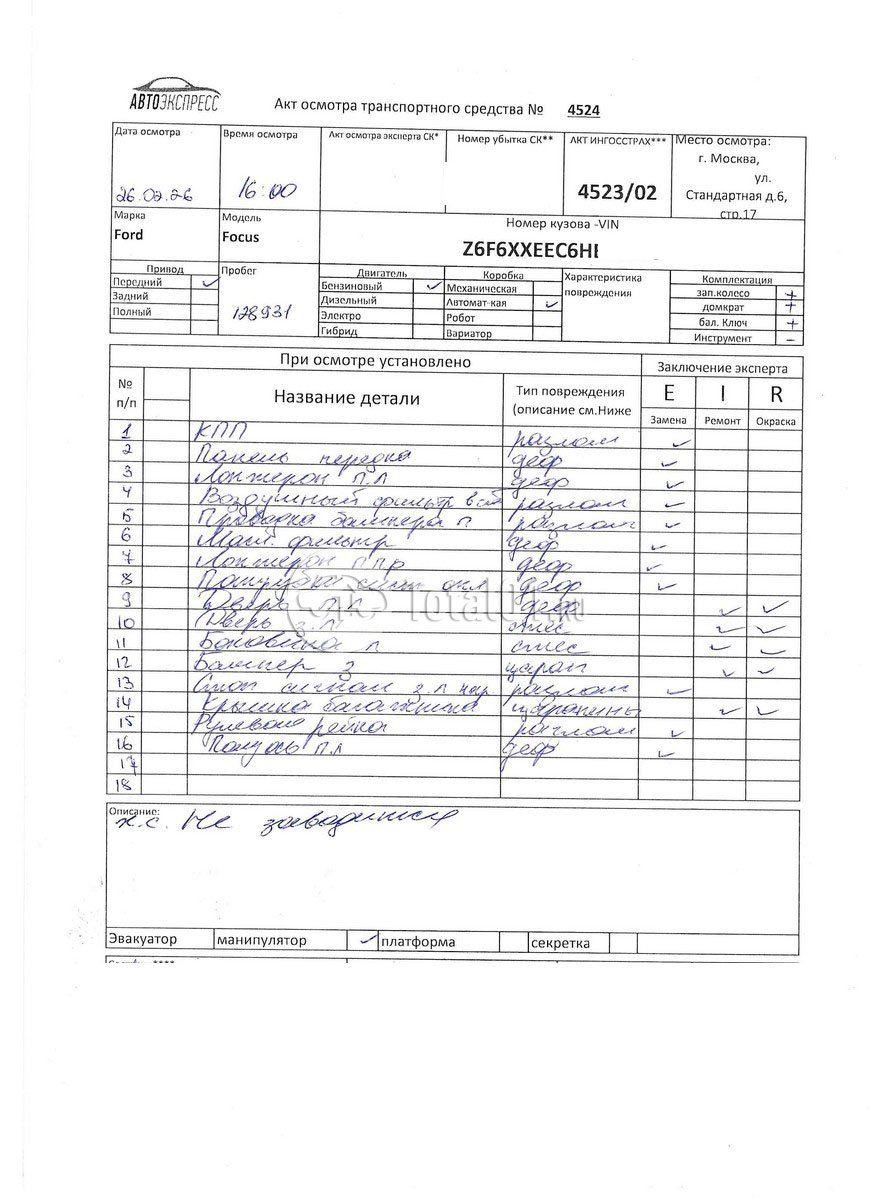 АВТОЭКСПРЕСС
Акт осмотра транспортного средства № 4524
Дата осмотра Время осмотра Акт осмотра эксперта СК* Номер убытка СК** АКТ ИНГОССТРАХ*** Место осмотра:
г. Москва,
ул.
26.02.26 16:00 4523/02 Стандартная д.6,
стр.17
Марка Модель Номер кузова -VIN
Ford Focus Z6F6XXEEC6HI
Привод Пробег Двигатель Коробка Характеристика повреждения Комплектация
Передний ✓ 128931 Бензиновый ✓ Механическая зап.колесо +
Задний Дизельный Автомат-кая ✓ домкрат +
Полный Электро Робот бал. Ключ +
Гибрид Вариатор Инструмент –
При осмотре установлено Заключение эксперта
№ п/п Название детали Тип повреждения (описание см.Ниже E I R
Замена Ремонт Окраска
1 КПП разлом ✓
2 Панель передка деф ✓
3 Лонжерон п.л деф ✓
4 Воздушный фильтр в сб разлом ✓
5 Проводка бампера п разлом ✓
6 Масл. фильтр деф ✓
7 Лонжерон п пр деф ✓
8 деф ✓
9 Дверь п.л деф ✓ ✓
10 Дверь з.л ✓ ✓
11 Боковина л ✓ ✓
12 Бампер з царап ✓ ✓
13 Стоп сигнал з.л нар разлом ✓
14 Крышка багажника царапины ✓ ✓
15 Рулевая рейка разлом ✓
16 Полуось п.л деф ✓
17
18
Описание:
х.с. Не заводится
Эвакуатор манипулятор ✓ платформа секретка
TotalCar.ru